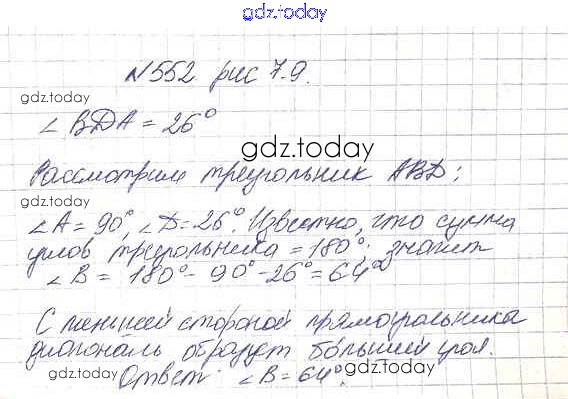 gdz.today
№552 рис 7.9.
gdz.today
∠BDA = 26°
gdz.today
Рассмотрим треугольник ABD:
gdz.today
∠A = 90°, ∠D = 26°. Известно, что сумма
углов треугольника = 180°, значит
∠B = 180° - 90° - 26° = 64°
gdz.today
С меньшей стороной прямоугольника
диагональ образует больший угол.
gdz.today
Ответ: ∠B = 64°.
gdz.today